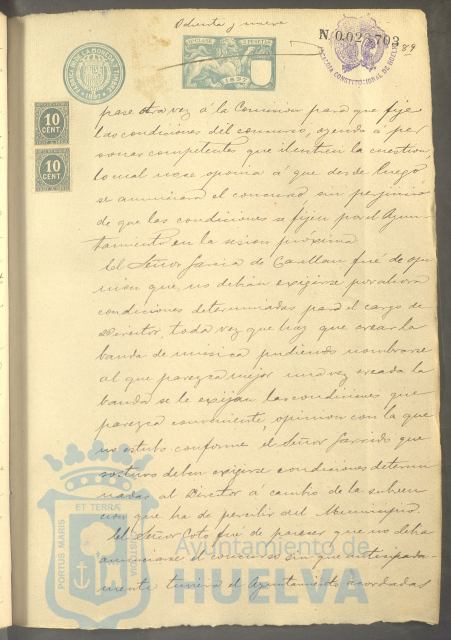 Ochenta y nueve
N. 0.028.703
89
FABRICA NACIONAL DE LA MONEDA Y TIMBRE
1897
2 PESETAS
1897
ALCALDIA CONSTITUCIONAL DE HUELVA
10
CENT.
10
CENT.
pase otra vez á la Comision para que fije
las condiciones del concurso, oyendo á per
sonas competentes que ilustren la cuestion,
lo cual no se oponia á que desde luego
se anunciara el concurso, sin perjuicio
de que las condiciones se fijen por el Ayun-
tamiento en la sesion próxima
El Señor Garcia de Castellan fué de opi
nion que no debian exigirse por ahora
condiciones determinadas para el cargo de
Director, toda vez que hay que crear la
banda de música pudiendo nombrarse
al que parezca mejor y una vez creada la
banda se le exijan las condiciones que
parezca conveniente, opinion con la que
no estubo conforme el Señor Garrido que
sostuvo deben exijirse condiciones determi
nadas al Director á cambio de la subven
cion que ha de percibir del Municipio.
El Señor Coto fué de parecer que no debia
anunciarse el concurso sin que anticipada-
mente tuviera el Ayuntamiento acordadas
PORTUS MARIS ET TERRÆ CUSTODIA
Ayuntamiento de
HUELVA